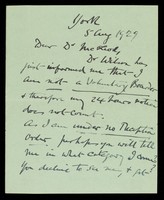 York
5 Aug 1929
Dear Dr McLeod,
Dr Wilson has
just informed me that I
am not a Voluntary Boarder
& therefore my 24 hours notice
does not count.
As I am under no Reception
Order, perhaps you will tell
me in what category I am?
You decline to see me, &